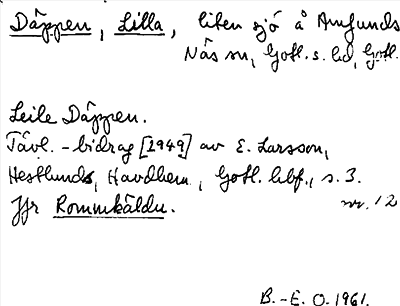 Däppen, Lilla, liten sjö å Amlunds
Näs sn, Gotl. s. hd, Gotl.
Leile Däppen.
Tävl.-bidrag [1949] av E. Larsson,
Hestlunds, Havdhem, Gotl. hbf., s. 3.
Jfr Rommkäldu. nr. 12
B.-E. O. 1961.